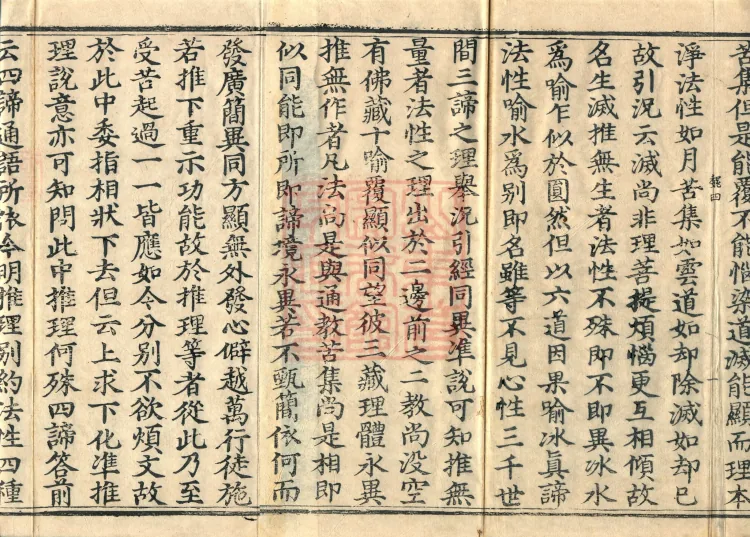 苦集但是能覆不能惱染道滅能顯而理本
淨法性如月苦集如雲道如却除滅如却已
故引況云滅尚非理菩提煩惱更互相傾故
名生滅推無生者法性不殊即不即異冰水
為喻乍似於圓然但以六道因果喻冰真諦
法性喻水為別即名雖等不見心性三千世
間三諦之理舉況引經同異準說可知推無
量者法性之理出於二邊前之二教尚没空
有佛藏十喻覆顯似同望彼三藏理體永異
推無作者凡法尚是與通教苦集尚是相即
似同能即所即諦境永異若不甄簡依何而
發廣簡異同方顯無外發心僻越萬行徒施
若推下重示功能故於推理等者從此乃至
受苦起過一一皆應如今分別不欲煩文故
於此中委指相狀下去但云上求下化準推
理說意亦可知問此中推理何殊四諦答前
云四諦通語所依今明推理別約法性四種